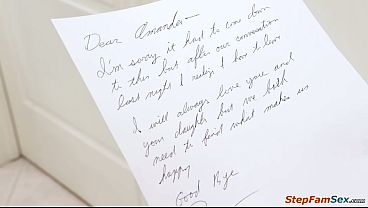 Dear Amanda—
I'm sorry it had to come down
to this but after our conversation
last night I realize I have to leave
I will always love you and
your daughter but we both
need to find what makes us
happy
Good Bye
StepFamSex.com